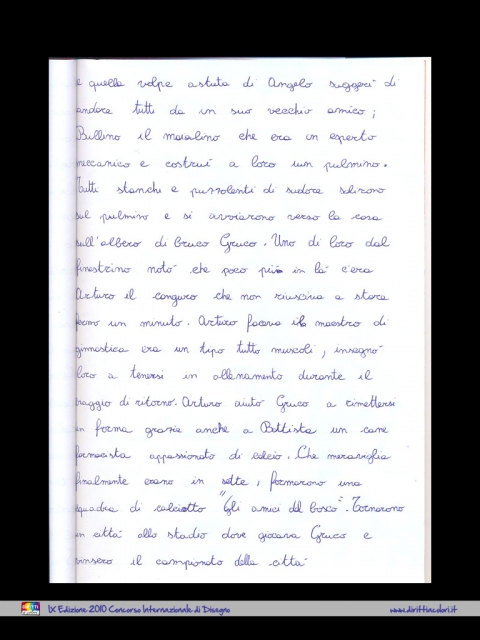 e quella volpe astuta di Angelo suggerì di
andare tutti da un suo vecchio amico;
Bullino il maialino che era un esperto
meccanico e costruì a loro un pulmino.
Tutti stanchi e puzzolenti di sudore salirono
sul pulmino e si avviarono verso la casa
sull'albero di bruco Gruco. Uno di loro dal
finestrino notò che poco più in là c'era
Arturo il canguro che non riusciva a stare
fermo un minuto. Arturo faceva il maestro di
ginnastica era un tipo tutto muscoli, insegnò
loro a tenersi in allenamento durante il
viaggio di ritorno. Arturo aiutò Gruco a rimettersi
in forma grazie anche a Battista un cane
farmacista appassionato di calcio. Che meraviglia
finalmente erano in sette, formarono una
squadra di calciotto "Gli amici del bosco". Tornarono
in città allo stadio dove giocava Gruco e
vinsero il campionato della città
IX Edizione 2010 Concorso Internazionale di Disegno
www.dirittiacolori.it